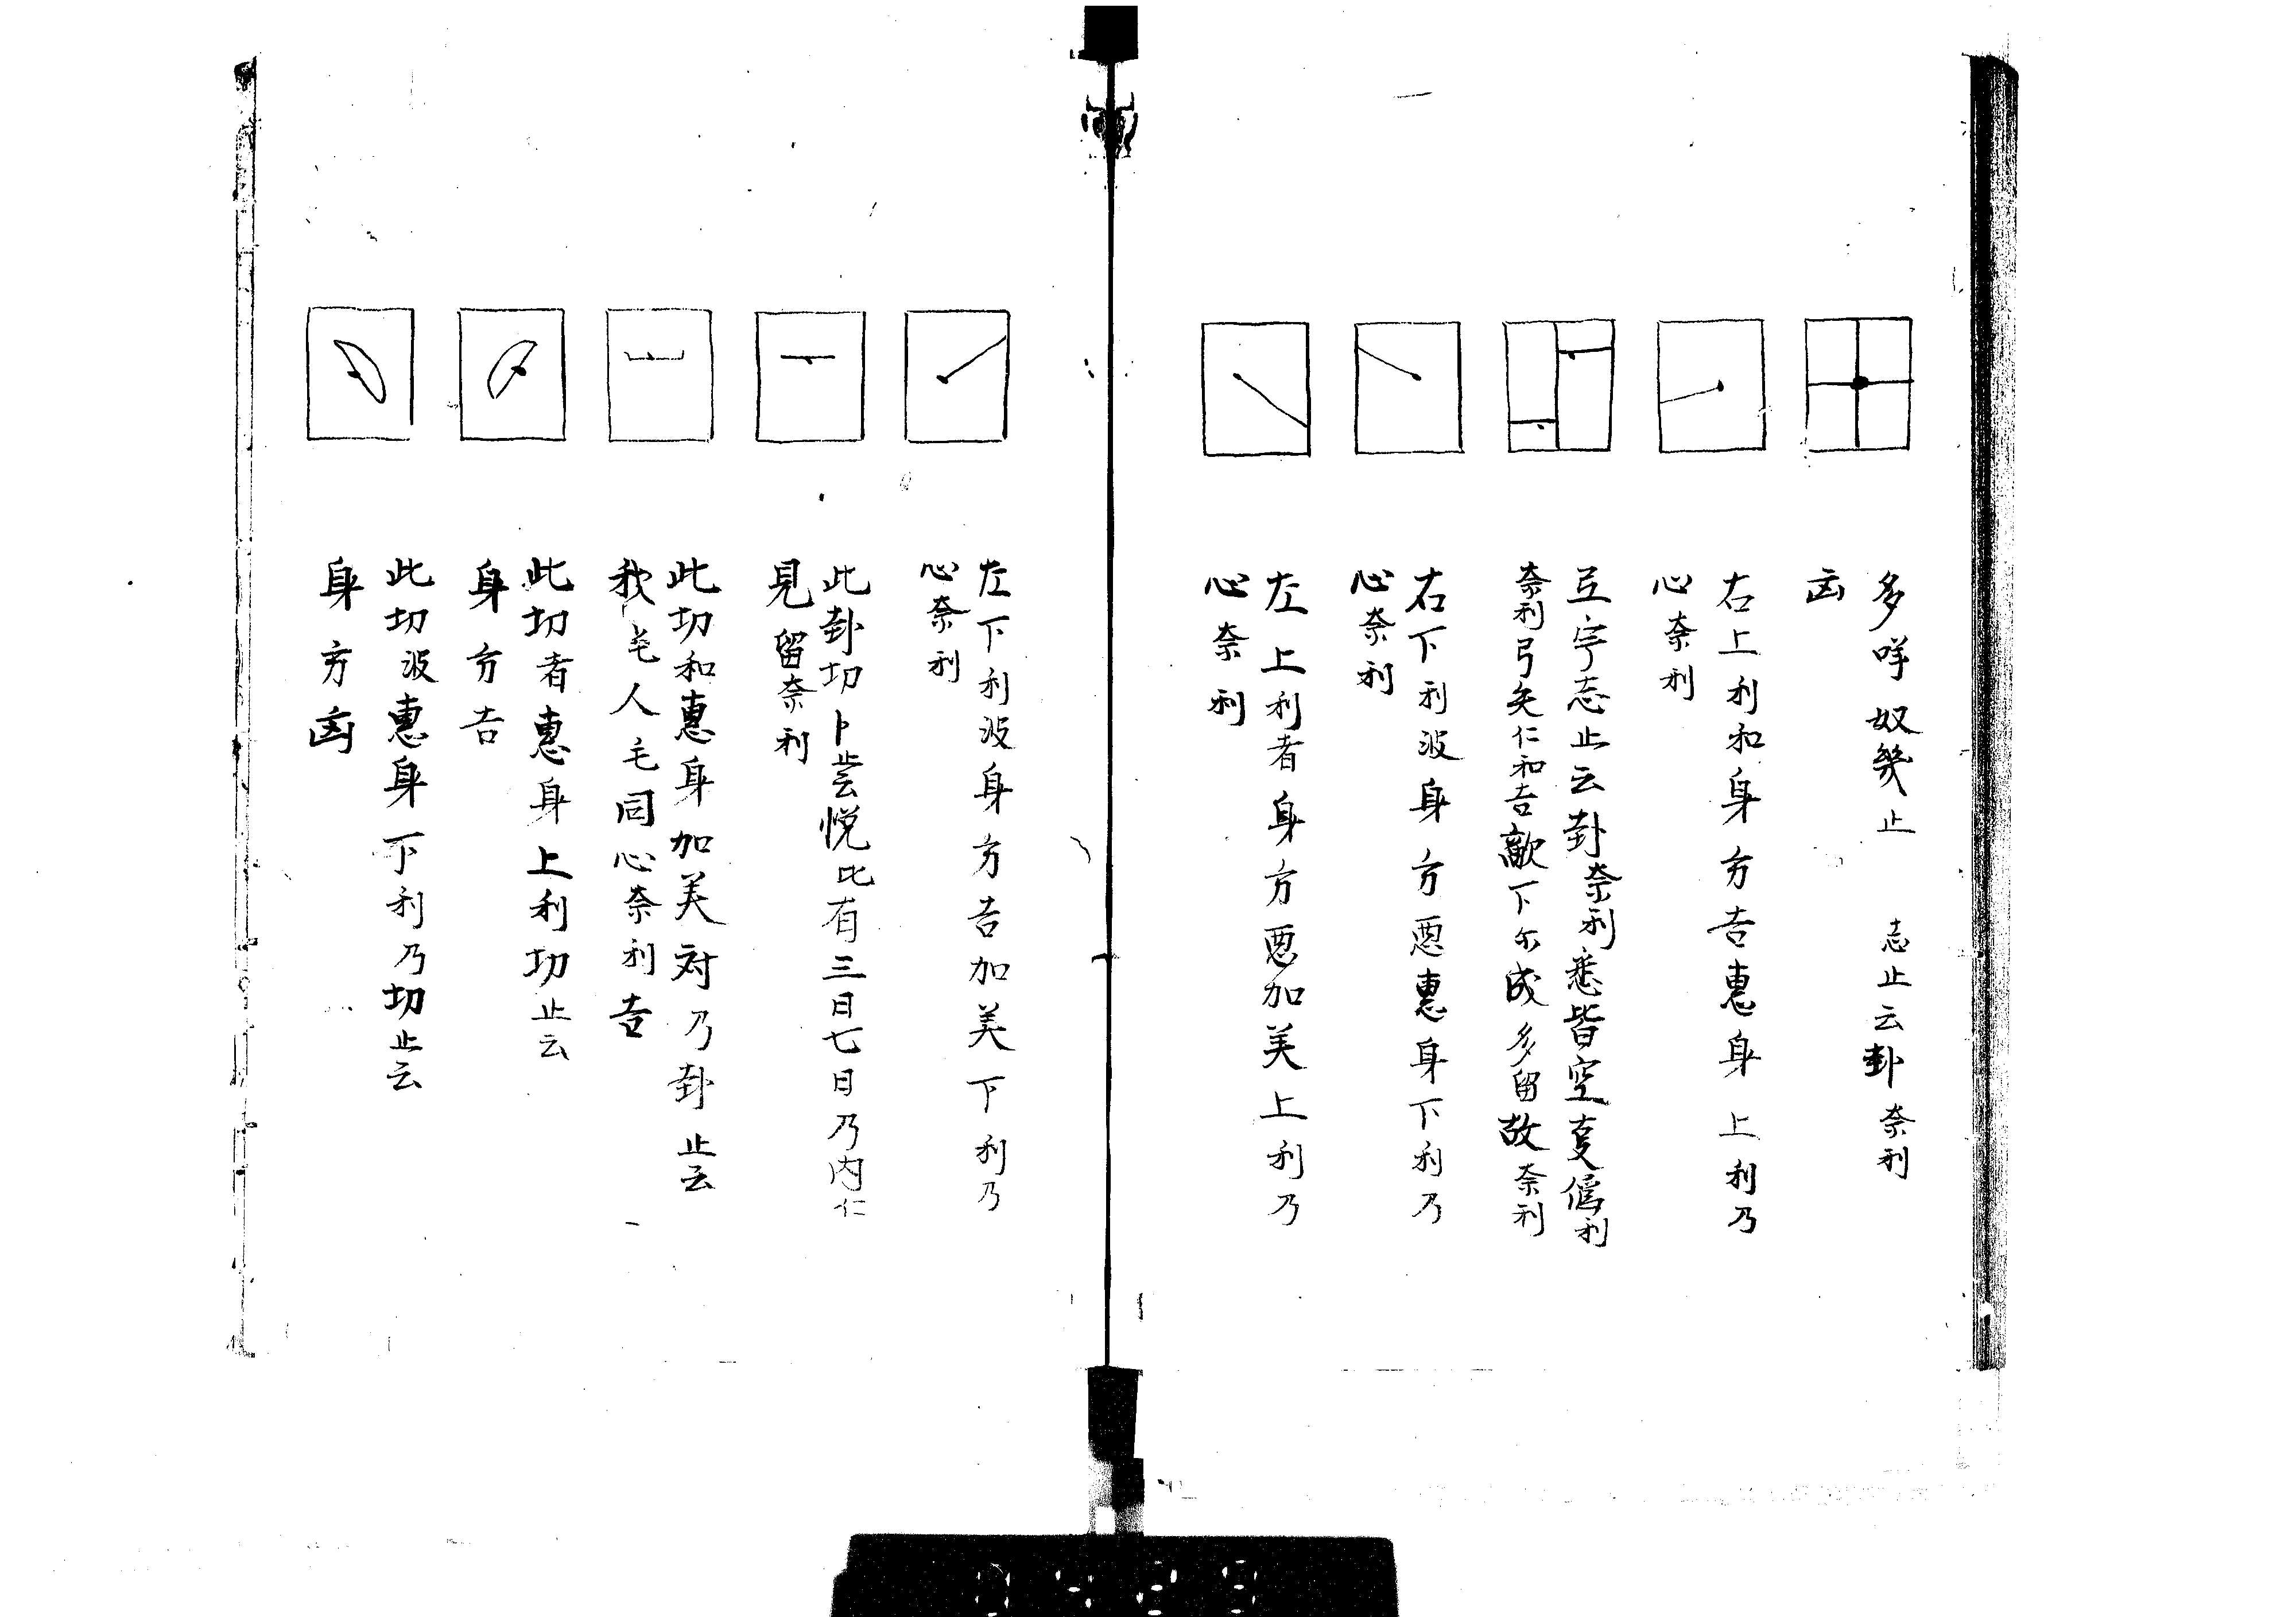 多咩奴幾止　志止云卦奈利
凶
右上利和身方吉惠身上利乃
心奈利
互宇志止云卦奈利悉皆空変偽利
奈利弓矢仁和吉敵下尓成多留故奈利
右下利波身方悪惠身下利乃
心奈利
左上利者身方悪加美上利乃
心奈利
左下利波身方吉加美下利乃
心奈利
此卦切卜云悦比有三日七日乃内仁
見留奈利
此切和惠身加美対乃卦止云
我毛人毛同心奈利吉
此切者惠身上利切止云
身方吉
此切波惠身下利乃切止云
身方凶